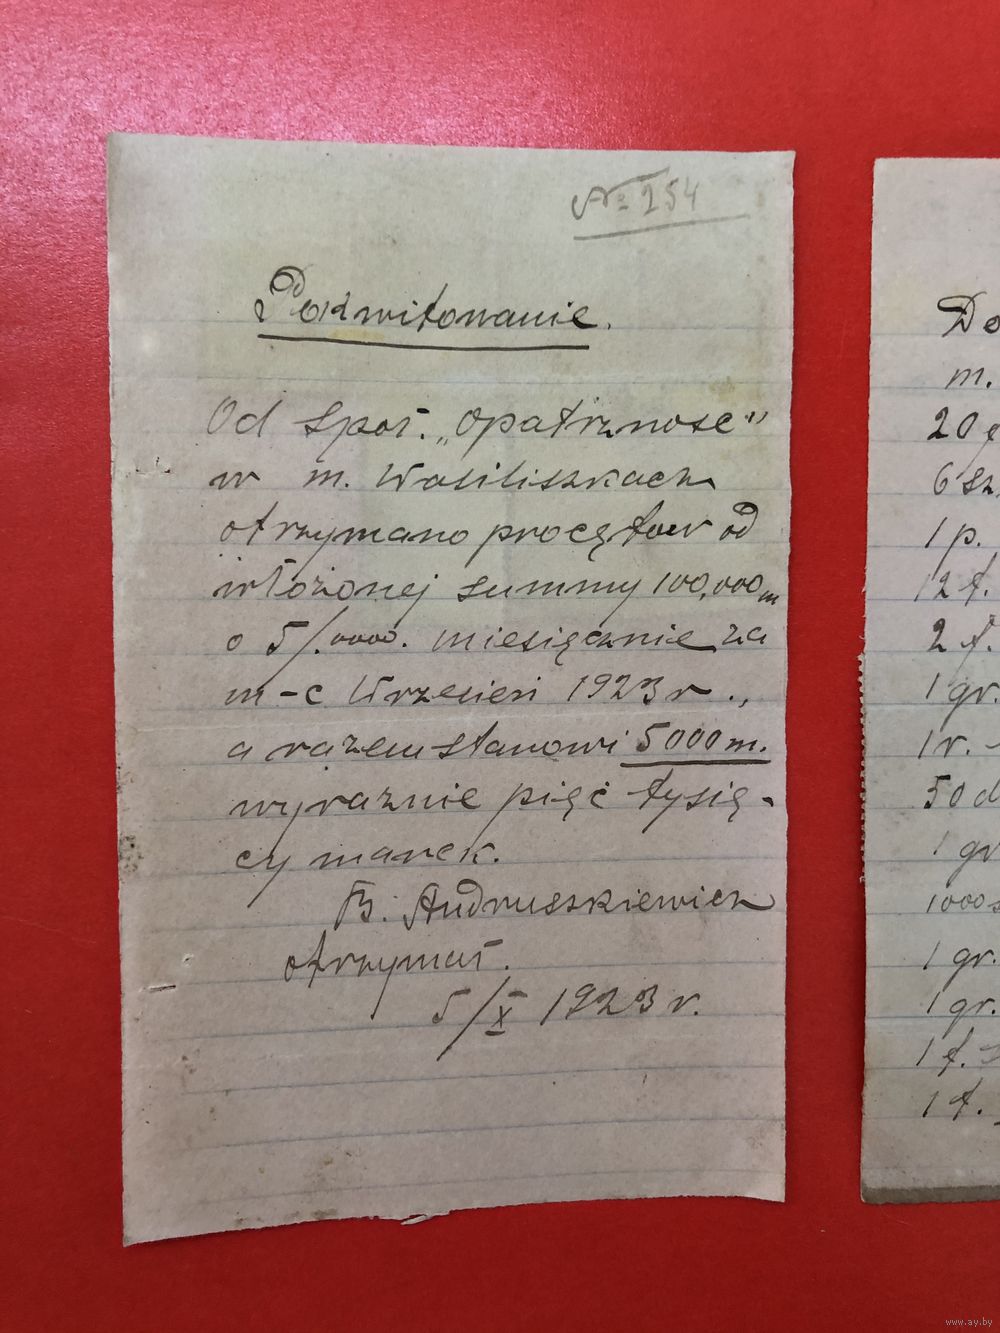 № 254
Pokwitowanie.
Od Społ. „Opatrznosc"
w m. Wasiliszkach
otrzymano procętow od
włożonej summy 100,000 m
o 5/.0000. miesięcznie za
m-c Wrzesień 1923 r.,
a razem stanowi 5000 m.
wyraznie pięć tysię-
cy marek.
B. Andruszkiewicz
otrzymał.
5/X 1923 r.
Do
m.
20
6 sz
1 p.
12 f.
2 f.
1 gr.
1 r.
50 d
1 gr
1000
1 gr.
1 gr.
1 f.
1 f.
www.ay.by